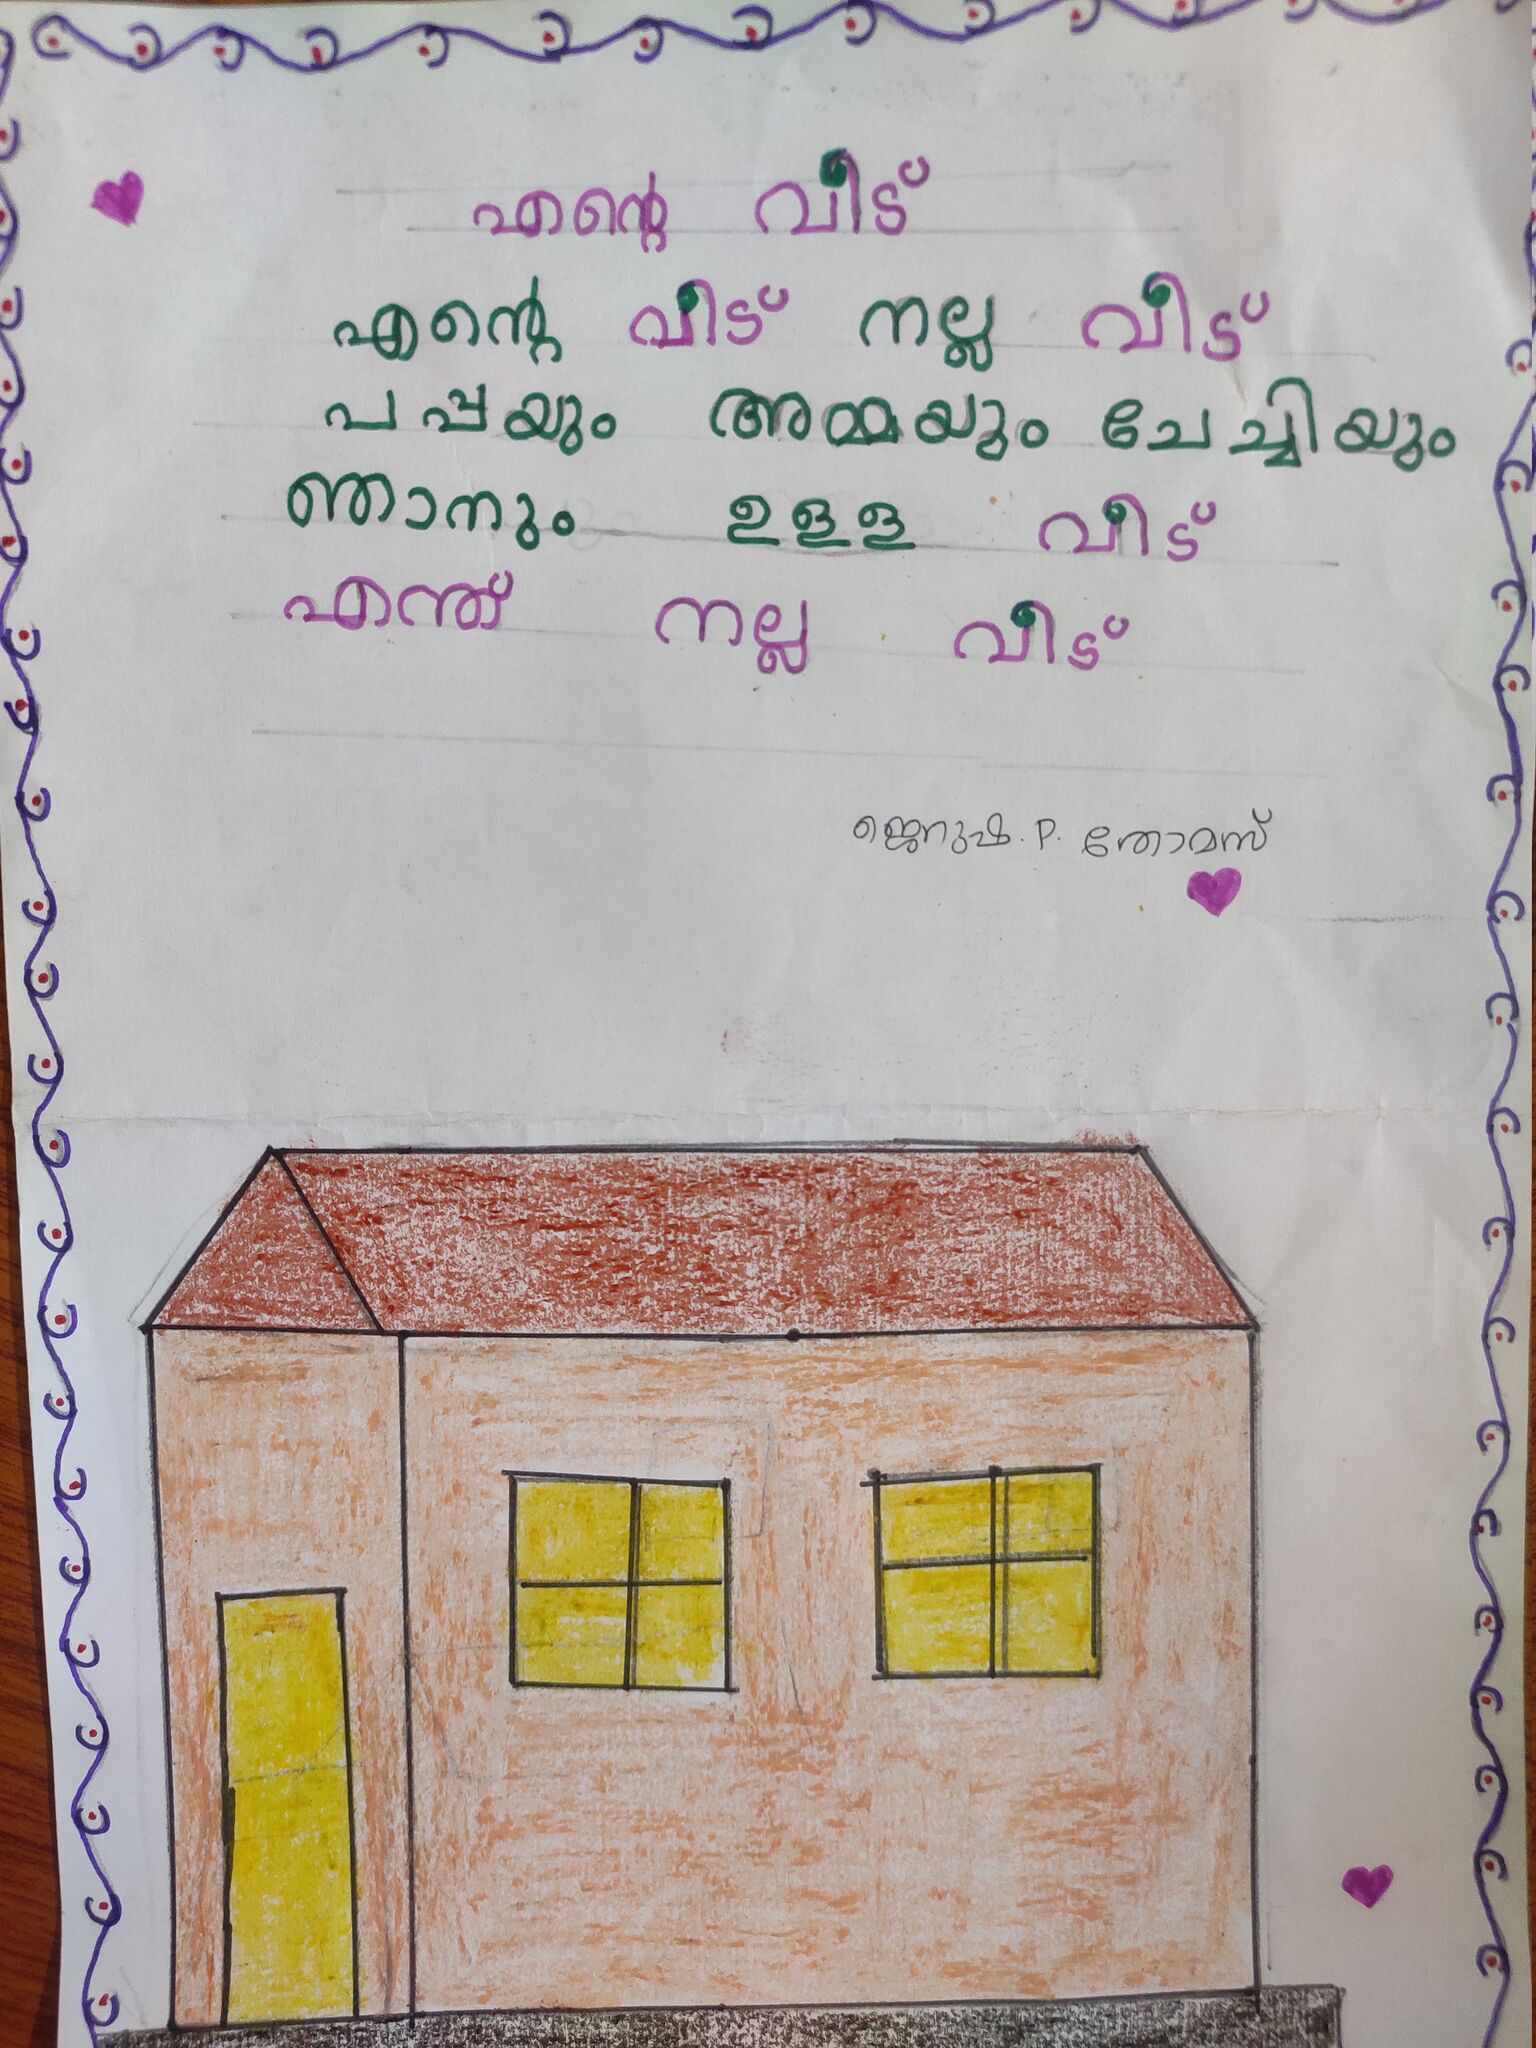 എന്റെ വീട്
എന്റെ വീട് നല്ല വീട്
പപ്പയും അമ്മയും ചേച്ചിയും
ഞാനും ഉള്ള വീട്
എന്ത് നല്ല വീട്
ജെറുഷ. P. തോമസ്